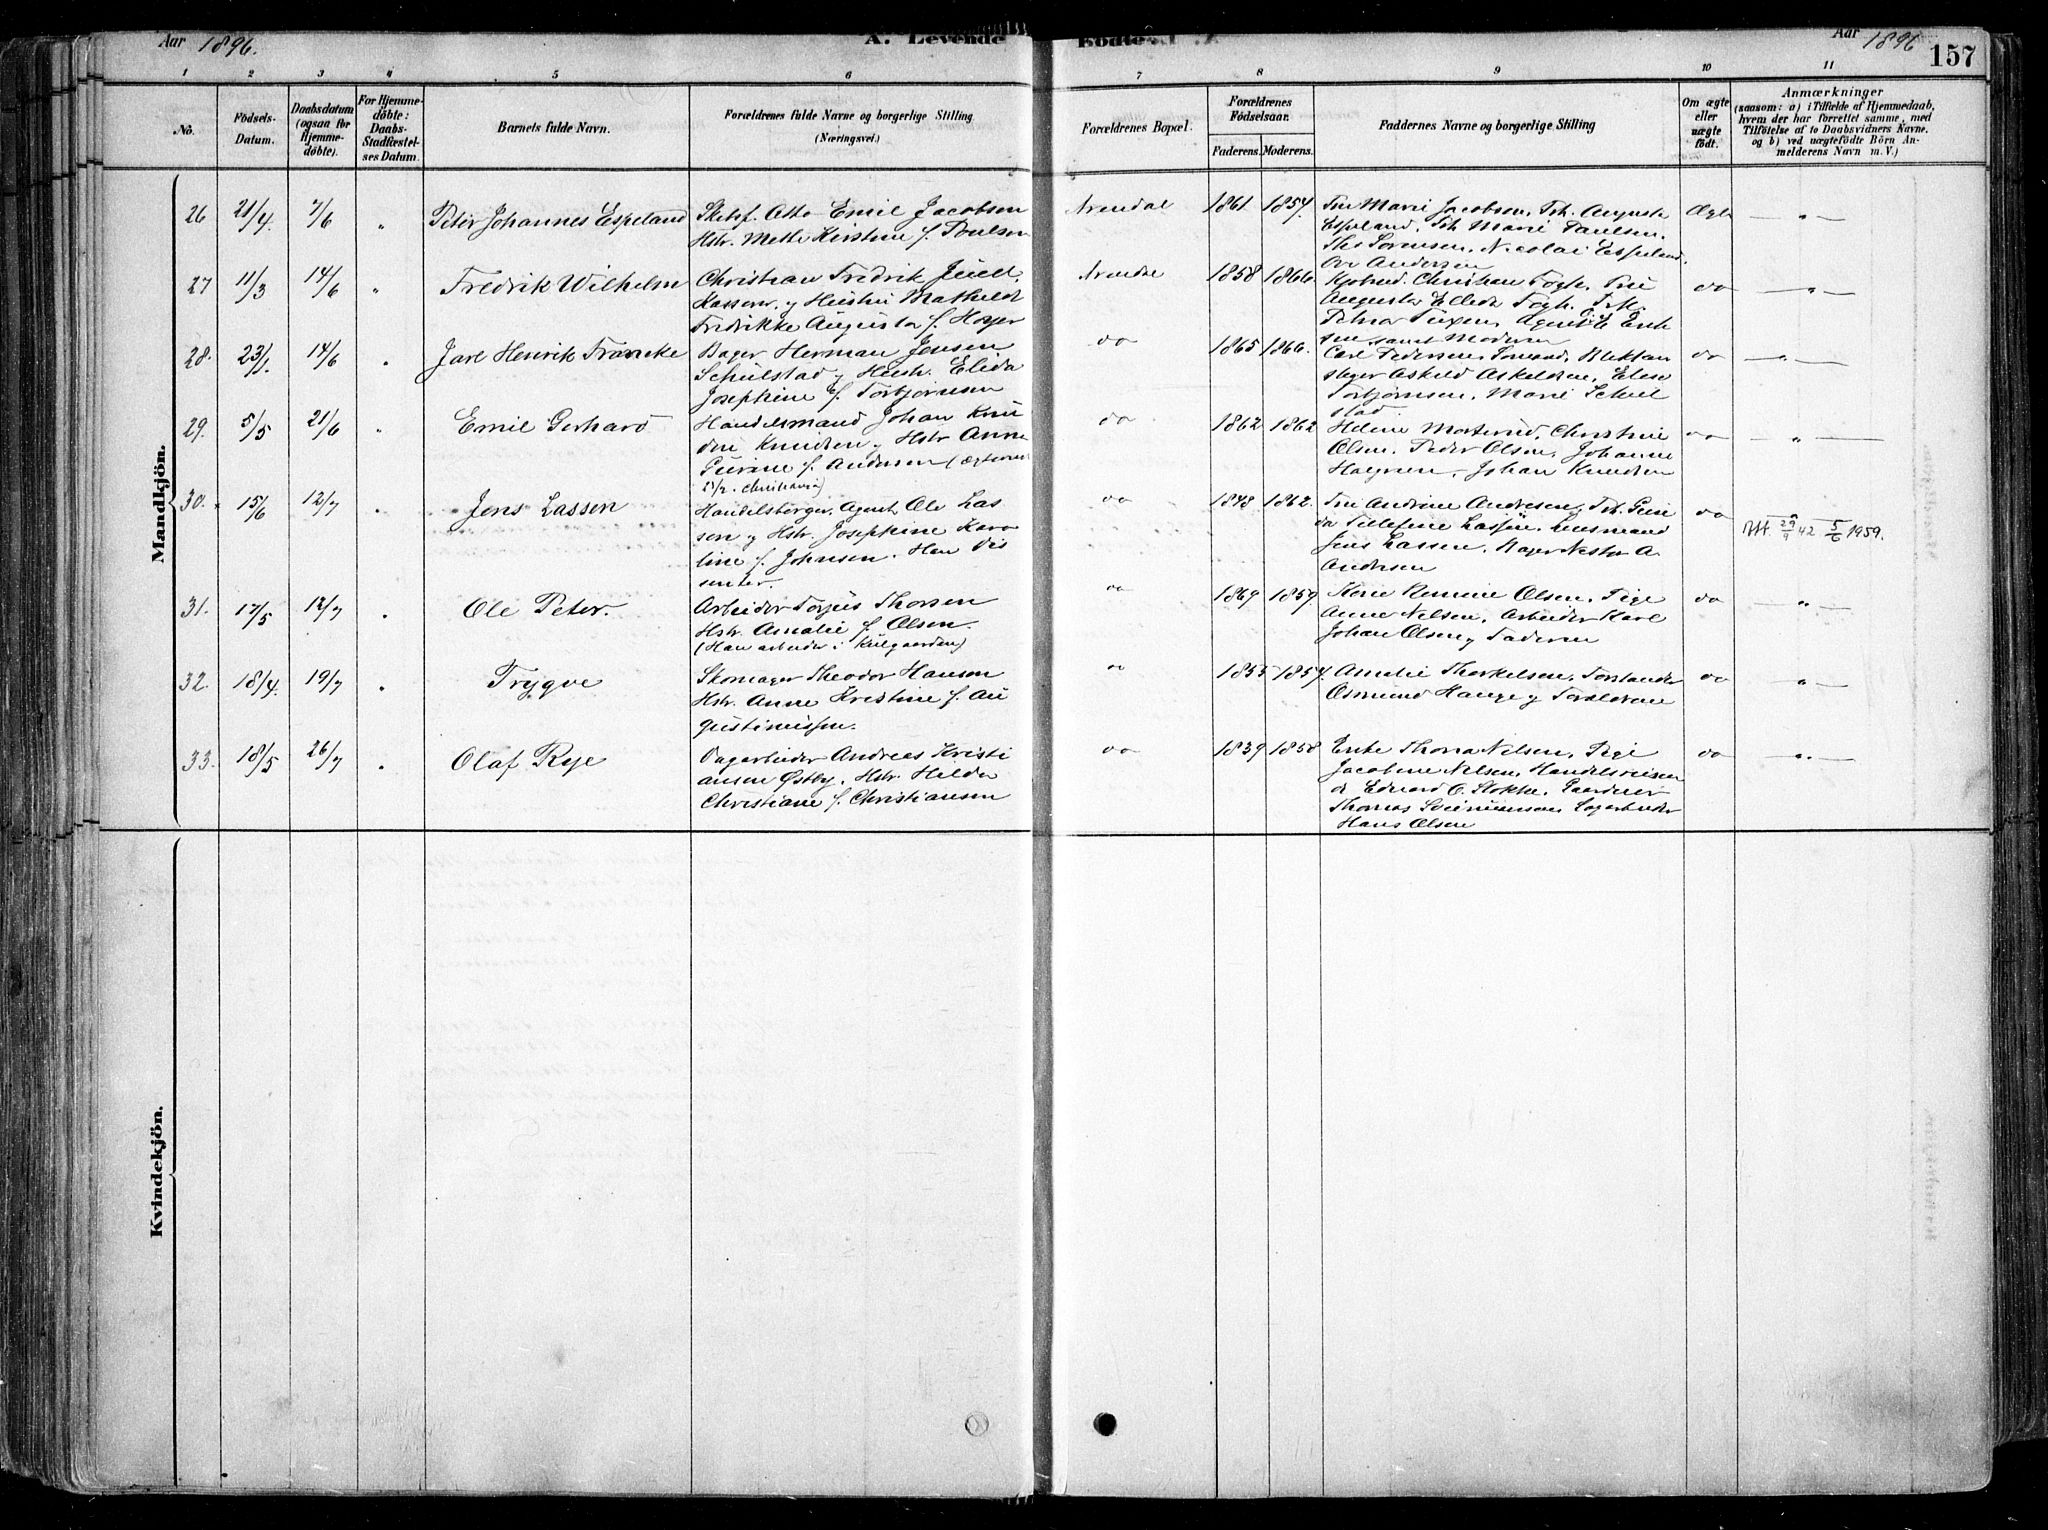 Aar 1896.
A. Levende
Födte
Aar 1896
157
1 2 3 4 5 6 7 8 9 10 11
No.
Födsels-
Datum.
Daabsdatum
(ogsaa for
Hjemme-
döbte).
For Hjemme-
döbte:
Daabs-
Stadfæstel-
ses Datum.
Barnets fulde Navn.
Forældrenes fulde Navne og borgerlige Stilling
(Næringsvei.)
Forældrenes Bopæl.
Forældrenes
Födselsaar.
Faderens. Moderens.
Faddernes Navne og borgerlige Stilling
Om ægte
eller
uægte
födt.
Anmærkninger
(saasom: a) i Tilfælde af Hjemmedaab,
hvem der har forrettet samme, med
Tilföielse af to Daabsvidners Navne.
og b) ved uægtefödte Börn An-
melderens Navn m. V.)
Mandkjön.
26 21/4. 7/6 " Peter Johannes Espeland
Otto Emil Jacobsen
Hstr. Mette Kirstine f. Poulsen
Arendal 1861 1854.
Fru Marie Jacobsen, Frk. Augusta
Espeland, Frk Marie Paulsen,
Sørensen, Nicolai Espeland,
Ove Andersen
Ægte — " —
27 11/3 14/6 " Fredrik Wilhelm
Christian Fredrik Juell
Kasserer og Hustru Mathilde
Fredrikke Augusta f. Høyer
Arendal 1858 1866.
Christian Fogh, Fru
Augusta Elleda Fogh, Frk.
samt Moderen
do — " —
28. 14/6 " Jarl Henrik Francke
Bager Herman Jensen
Schulstad og Hustr. Elida
Josephine f. Torbjørnsen
do 1865 1866.
Carl Pedersen,
Askild Askildsen, Elise
Torbjørnsen, Marie Schul
stad.
do — " —
29. 5/5 21/6 " Emil Gerhard
Handelsmand Johan Knu
dsen Knudsen og Hstr Anne
Gurine f. Andersen
Christiania)
do 1862 1862
Helene Christine
Olsen, Peder Olsen, Johanne
Halgren, Johan Knudsen
do — " —
30. 15/6 12/7 Jens Lassen
Handelsborger, Agent Ole Las
sen og Hstr. Josephine Karo
line f. Johnsen. Han Dis
senter.
do 1848 1862.
Fru Andrine Andresen, Frk.
Tellefine Lassen,
Jens Lassen, Bager Nestor A.
Andersen
do
29/9 42 5/6 1959.
31. 17/5 12/7 " Ole Peter.
Arbeider Torjus Thorsen
Hstr. Amalie f. Olsen.
(Han arbeider i Kulgaarden)
do 1869 1859
Olsen, Pige
Anne Nilsen, Arbeider Karl
Johan Olsen og Faderen
do — " —
32. 18/4. 19/7 " Trygve
Skomager Theodor Hansen
Hstr. Anne Kristine f. Au
gustinussen.
do 1855 1857.
Amalie Thorkelsen, Forstander
Osmund Hauge og Forældrene
do — " —
33. 18/5 26/7 " Olaf Rye
Dagarbeider Andreas Kristi
ansen Østby, Hstr. Helda
Christiane f. Christiansen
do 1839 1858
Enke Thora Nilsen, Pige
Jacobine Nilsen, Handelsreisen
de Edvard O. Stokke, Gaardeier
Thomas Sagarbeider
Hans Olsen
do — " —
Kvindekjön.